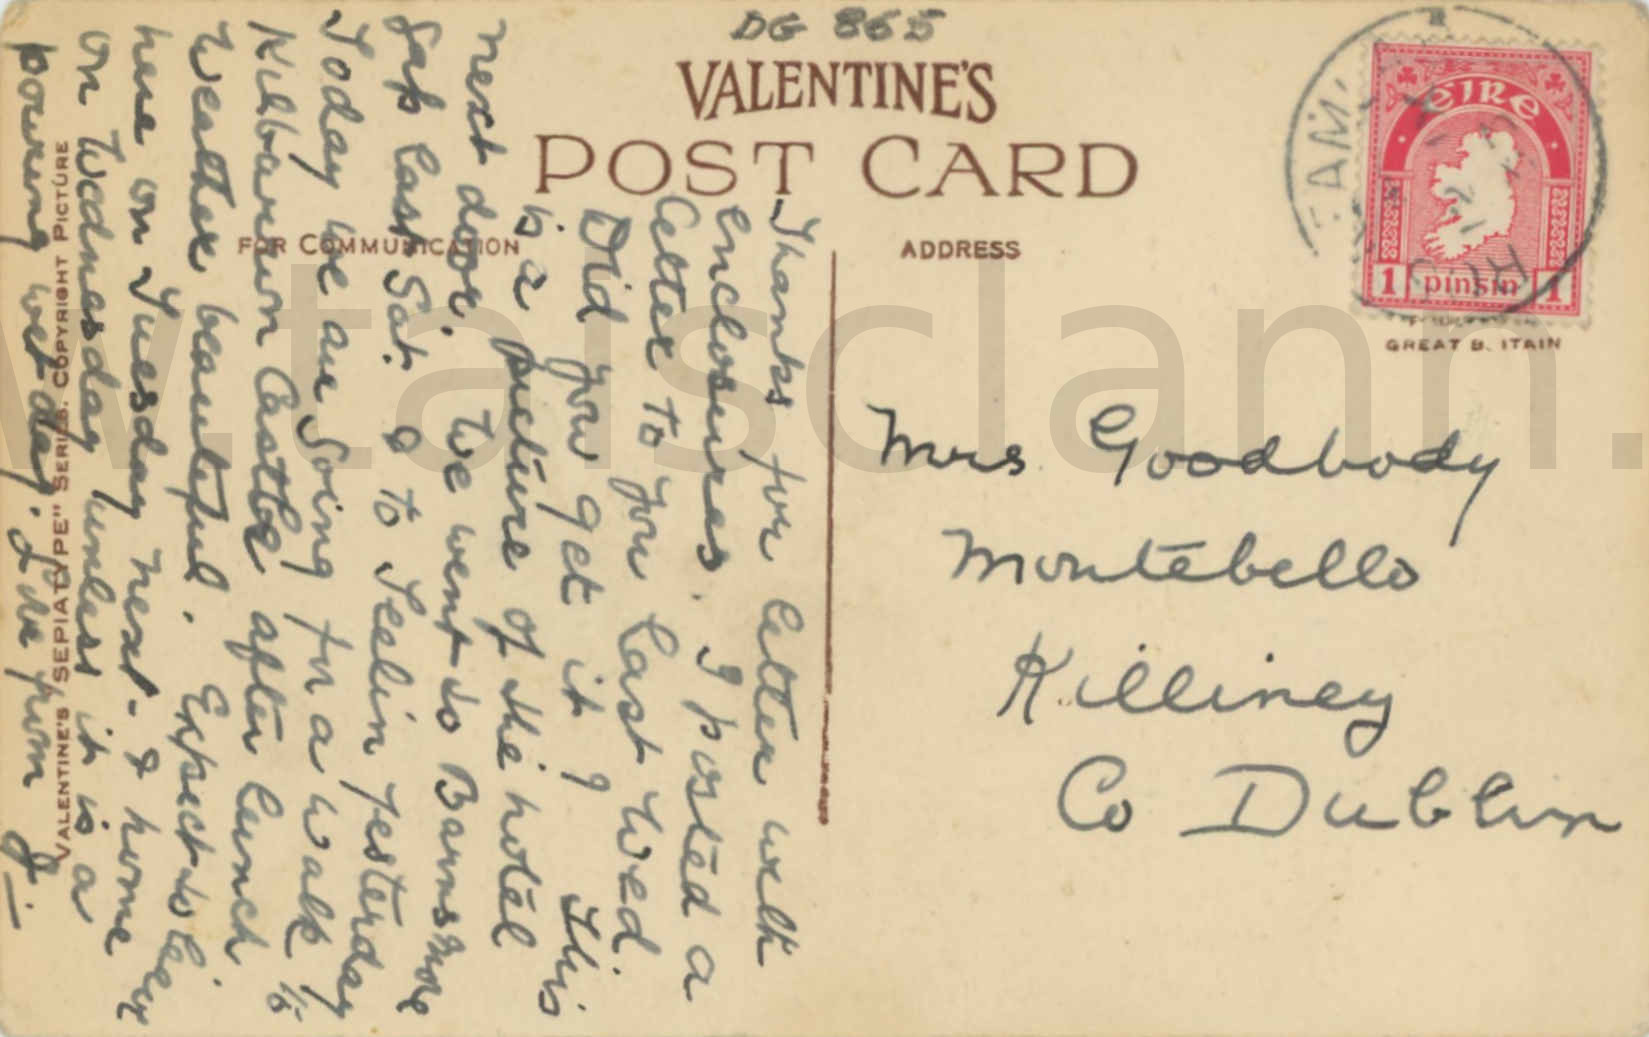 DG 865
VALENTINE'S
POST CARD
FOR COMMUNICATION
ADDRESS
EIRE
1 pinsin 1
GREAT B. ITAIN
VALENTINE'S "SEPIATYPE" SERIES. COPYRIGHT PICTURE
Thanks for letter with
enclosures. I posted a
letter to you last Wed.
Did you get it? This
is a picture of the hotel
next door. We went to Barnsmore
Gap last Sat. & to Teelin yesterday
Today we are going for a walk to
Kilbarron Castle after lunch
Weather beautiful. Expect to leave
here on Tuesday next & home
on Wednesday unless it is a
pouring wet day. Love from
Mrs Goodbody
Montebello
Killiney
Co Dublin
w.taisclann.